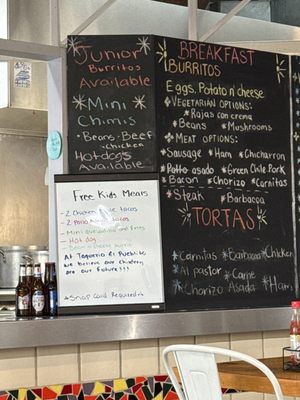 Junior
Burritos
Available
Mini
Chimis
-Beans-Beef
-Chicken
Hotdogs
Available
Breakfast
Burritos
Eggs, Potato n' cheese
Vegetarian Options:
Rajas con crema
Beans
Mushrooms
Meat Options:
Sausage Ham Chicharron
Potto asado Green Chile Pork
Bacon Chorizo Carnitas
Steak Barbacoa
TORTAS
Carnitas Barbacoa Chicken
Al pastor Carne
Chorizo Asada Ham
Free Kids Meals
- 2 Chicken tacos
- 2 tacos
- Mini and fries
- Hot dog
- Bean n cheese burrito
At Taqueria El Pueblito
we believe our children
are our Future!!!
* Snap Card Required *